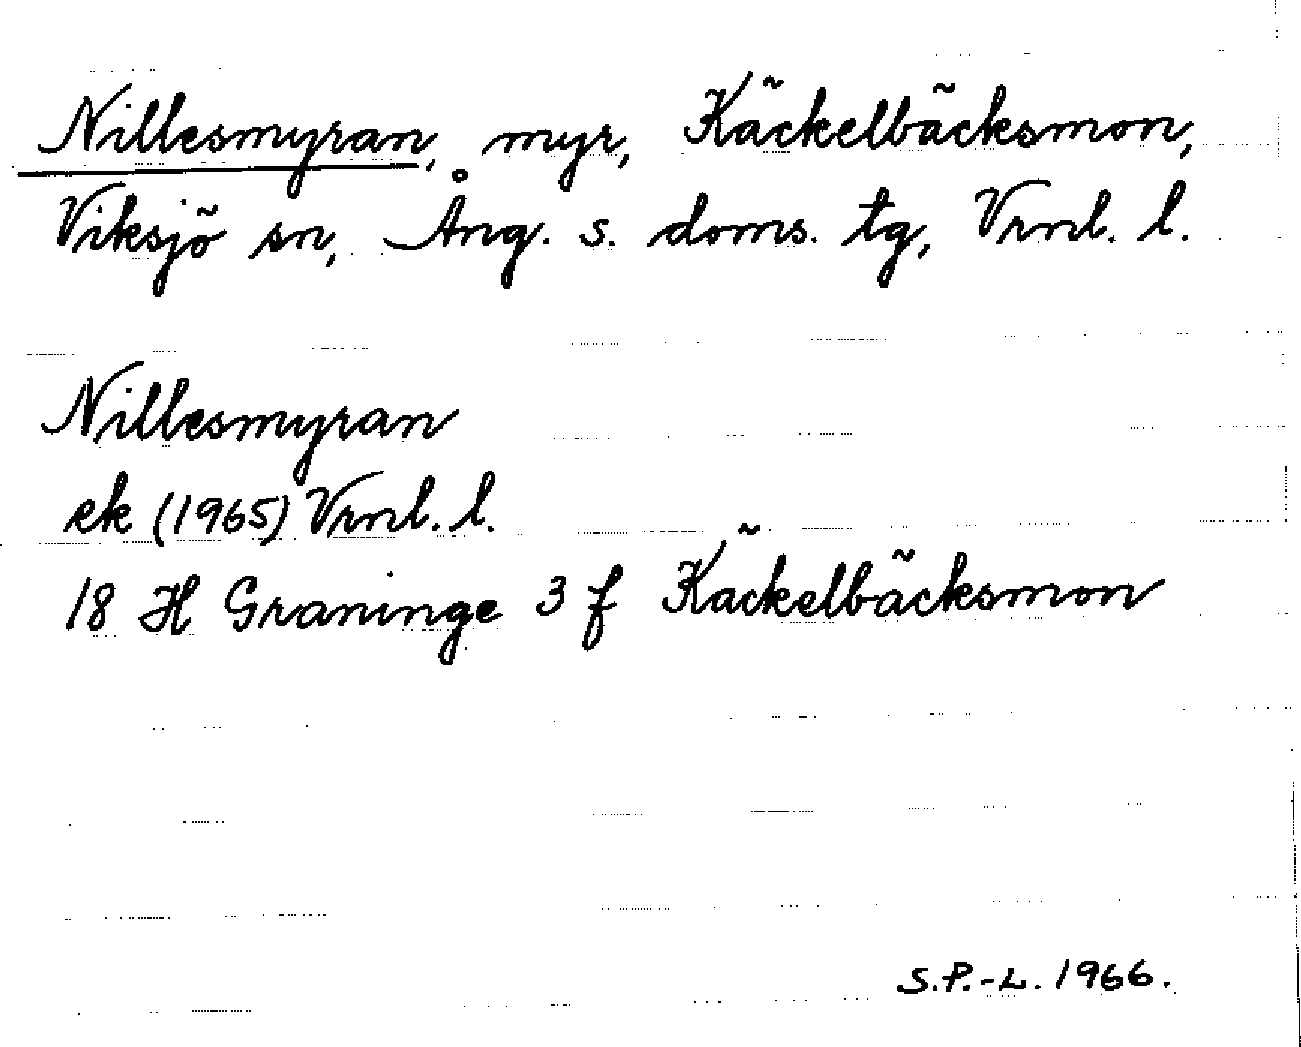 Nillesmyran, myr, Käckelbäcksmon,
Viksjö sn, Ång. s. doms. tg, Vrnl. l.
Nillesmyran
ek (1965) Vrnl. l.
18 H Graninge 3 f Käckelbäcksmon
S.P.-L. 1966.